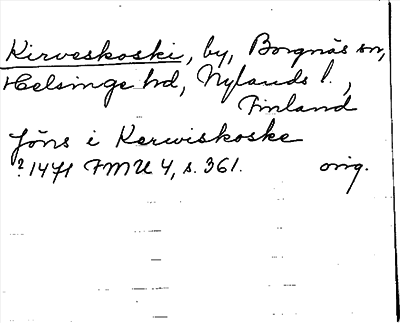 Kirveskoski, by, Borgnäs sn,
Helsinge hd, Nylands l.,
Finland
Jöns i Kerwiskoske
?1471 FMU 4, s. 361. orig.